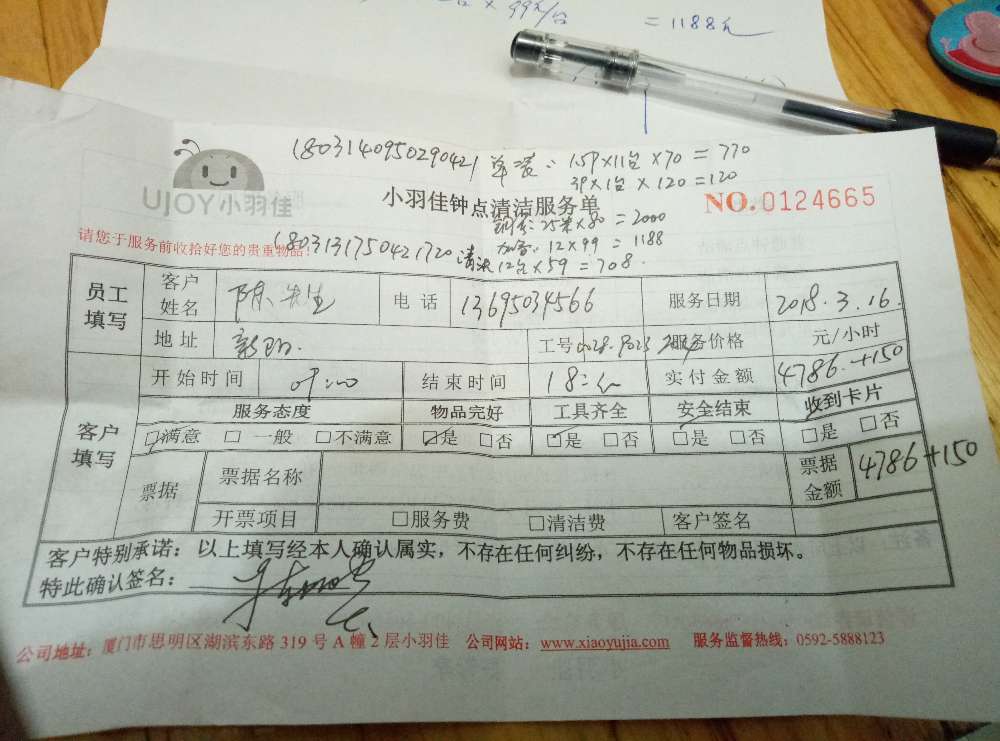 × 99元/台 = 1188元
1803140950290421 单装: 1.5P×11台×70 = 770
3P×1台×120=120
UJOY小羽佳
小羽佳钟点清洁服务单
NO.0124665
25米×80 = 2000
请您于服务前收拾好您的贵重物品!
12×99 = 1188
1803131750421720 清洗12台×59=708.
员工填写
客户姓名 陈先生 电话 13695034566 服务日期 2018.3.16.
地址 工号 服务价格 元/小时
开始时间 09:00 结束时间 18:00 实付金额 4786.+150
客户填写
服务态度 物品完好 工具齐全 安全结束 收到卡片
☑满意 □一般 □不满意 ☑是 □否 ☑是 □否 ☑是 □否 □是 □否
票据 票据名称 票据金额 4786+150
开票项目 □服务费 □清洁费 客户签名
客户特别承诺：以上填写经本人确认属实，不存在任何纠纷，不存在任何物品损坏。
特此确认签名：
公司地址：厦门市思明区湖滨东路 319 号 A 幢 2 层小羽佳 公司网站：www.xiaoyujia.com 服务监督热线：0592-5888123